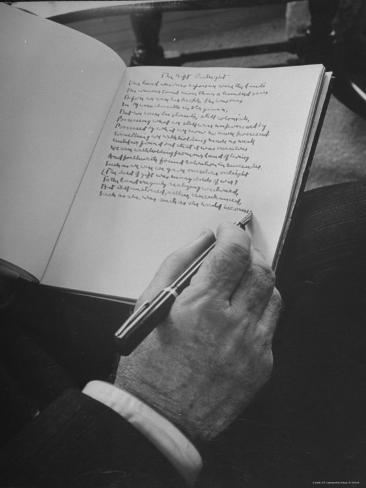 The Gift Outright
The land was ours before we were the land's
She was our land more than a hundred years
Before we were her people. She was ours
In Massachusetts, in Virginia,
But we were England's, still colonials,
Possessing what we still were unpossessed by,
Possessed by what we now no more possessed.
Something we were withholding made us weak
Until we found out that it was ourselves
We were withholding from our land of living
And forthwith found salvation in surrender.
Such as we were we gave ourselves outright
(The deed of gift was many deeds of war)
To the land vaguely realizing westward,
But still unstoried, artless, unenhanced,
Such as she was, such as she would become